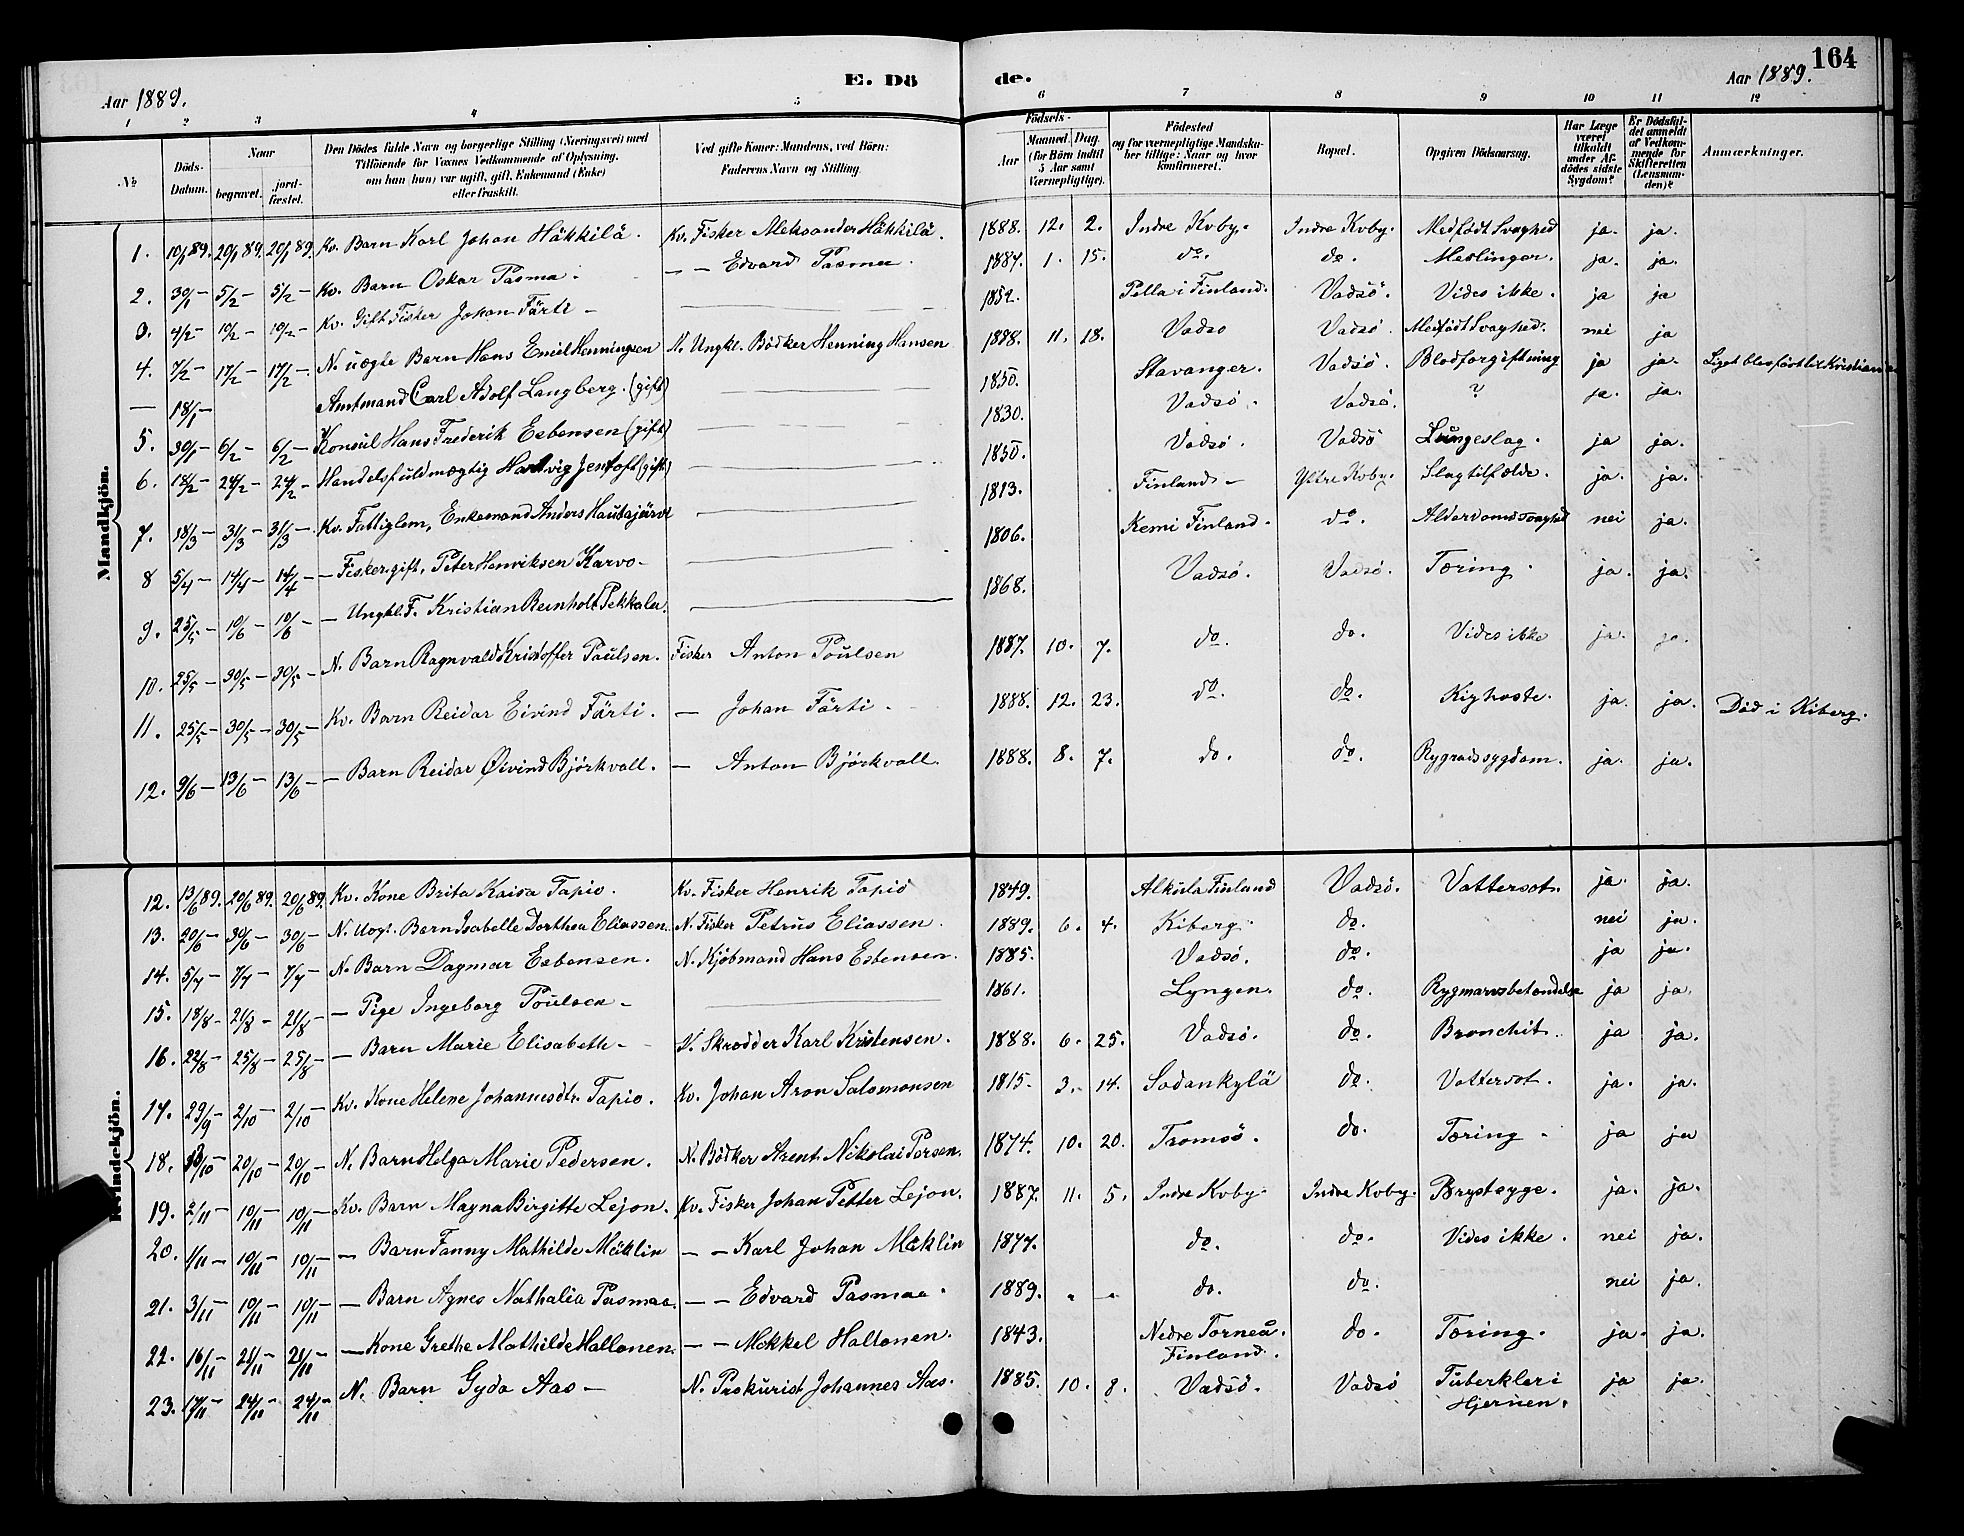 164
Aar 1889. E. Dö de. Aar 1889.
1 2 3 4 5 6 7 8 9 10 11 12
№ Döds-Datum. Naar begravet. jord-fæstet. Den Dödes fulde Navn og borgerlige Stilling (Næringsvei) med Tilföiende for Voxnes Vedkommende af Oplysning, om han (hun) var ugift, gift, Enkemand (Enke) eller fraskilt. Ved gifte Koner: Mandens, ved Börn: Faderens Navn og Stilling. Födsels- Aar Maaned Dag. (for Börn indtil 5 Aar samt Værnepligtige). Födested og for værnepligtige Mandskaber tillige: Naar og hvor konfirmeret. Bopæl. Opgiven Dödsaarsag. Har Læge været tilkaldt under Afdödes sidste Sygdom? Er Dödsfaldet anmeldt af Vedkommende for Skifteretten (Lensmanden)? Anmærkninger.
Mandkjön.
1. 10/1 89. 20/1 89. 20/1 89. Kv. Barn Karl Johan Häkkilä. Kv. Fisker Aleksander Häkkilä. 1888. 12. 2. Indre Kvby. Indre Kvby. Medfödt Svaghed ja. ja.
2. 30/1 — 5/2 — 5/2 — Kv. Barn Oskar Pasma. — — Edvard Pasma. 1887. 1. 15. do. do. Meslinger. ja. ja.
3. 4/2 — 10/2 — 10/2 — Kv. Gift Fisker Johan Färti — 1852. Pella i Finland. Vadsö. Vides ikke. ja ja
4. 7/2 — 17/2 — 17/2 — N. uægte Barn Hans Emil Henningsen N. Ungkl. Bödker Henning Hansen 1888. 11. 18. Vadsö Vadsö. Medfödt Svaghed. nei ja
— 18/1 — Amtmand Carl Adolf Langberg. (gift) 1850. Stavanger. Vadsö. Blodforgiftning ja ja. Liget blev fört til Kristiania
5. 30/1 — 6/2 — 6/2 — Konsul Hans Frederik Esbensen (gift) 1830. Vadsö. Vadsö. ? ja. ja.
6. 18/2 — 24/2 — 24/2 — Handelsfuldmægtig Hartvig Jentoft (gift) 1850. Vadsö. Vadsö Lungeslag. ja ja.
7. 18/3 — 31/3 — 31/3 — Kv. Fattiglem, Enkemand Anders Hautajärvi 1813. Finland — Ytre Kvby. Slagtilfælde. ja. ja.
8 5/4 — 14/4 — 14/4 — — Fisker gift, Peter Henriksen Karvo — 1806. Kemi Finland. do. Alderdomssvaghed nei ja.
9. 25/5 — 10/6 — 10/6 — — Ungkl. F. Kristian Reinholt Pekkala. 1868. Vadsö. Vadsö. Tæring. ja. ja.
10. 25/5 — 30/5 — 30/5 — N. Barn Ragnvald Kristoffer Paulsen. Fisker Anton Poulsen 1887. 10. 7. do. do. Vides ikke ja. ja.
11. 25/5 — 30/5 — 30/5 — Kv. Barn Reidar Eivind Färti. — Johan Färti. 1888. 12. 23. do. do. Kighoste. ja. ja. Död i Kiberg.
12. 9/6 — 13/6 — 13/6 — — Barn Reidar Øivind Björkvall. — Anton Björkvall. 1888. 8. 7. do. do. Rygradssygdom. ja. ja.
Kvindekjön.
12. 13/6 89. 20/6 89. 20/6 89. Kv. Kone Brita Kaisa Tapio. Kv. Fisker Henrik Tapio 1849. Alkula Finland Vadsö. Vattersot. ja. ja.
13. 20/6 — 30/6 — 30/6 — N. Uægt. Barn Isabelle Dorthea Eliassen. N. Fisker Petrus Eliassen. 1889. 6. 4. Kiberg. do. nei ja.
14. 5/7 — 7/7 — 7/7 — N. Barn Dagmar Esbensen. N. Kjöbmand Hans Esbensen. 1885. Vadsö. do. ja ja.
15. 18/8 — 21/8 — 21/8 — — Pige Ingeborg Poulsen — 1861. Lyngen. do. Rygmarvsbetændelse ja ja.
16. 22/8 — 25/8 — 25/8 — — Barn Marie Elisabeth — N. Skrædder Karl Kristensen. 1888. 6. 25. Vadsö. do. Bronchit. ja ja.
17. 29/9 — 2/10 — 2/10 — Kv. Kone Helene Johannesdtr. Tapio. Kv. Johan Aron Salomonsen 1815. 3. 14. Sodankylä do. Vattersot. ja. ja.
18. /10 — 20/10 — 20/10 — N. Barn Helga Marie Pedersen. N. Bödker Arent Nikolai 1874. 10. 20. Tromsö. do. Tæring. ja ja
19. 2/11 — 10/11 — 10/11 — Kv. Barn Magna Birgitte Lejon. Kv. Fisker Johan Petter Lejon. 1887. 11. 5. Indre Kvby. Indre Kvby. Brystsyge. ja. ja.
20. 1/11 — 10/11 — 10/11 — — Barn Fanny Mathilde Mäklin — — Karl Johan Mäklin 1877. do. do. Vides ikke. nei ja.
21. 3/11 — 10/11 — 10/11 — — Barn Agnes Nathalia Pasmaa. — — Edvard Pasmaa. 1889. „ „ do. do. nei ja.
22. 16/11 — 21/11 — 21/11 — — Kone Grethe Mathilde Hallonen. — — Mikkel Haltonen. 1843. Nedre Torneå. Finland. do. Tæring. ja. ja.
23. 17/11 — 24/11 — 24/11 — N. Barn Gyda Aas — N. Prokurist Johannes Aas. 1885. 10. 8. Vadsö. Vadsö Tuberkler i Hjernen. ja ja.